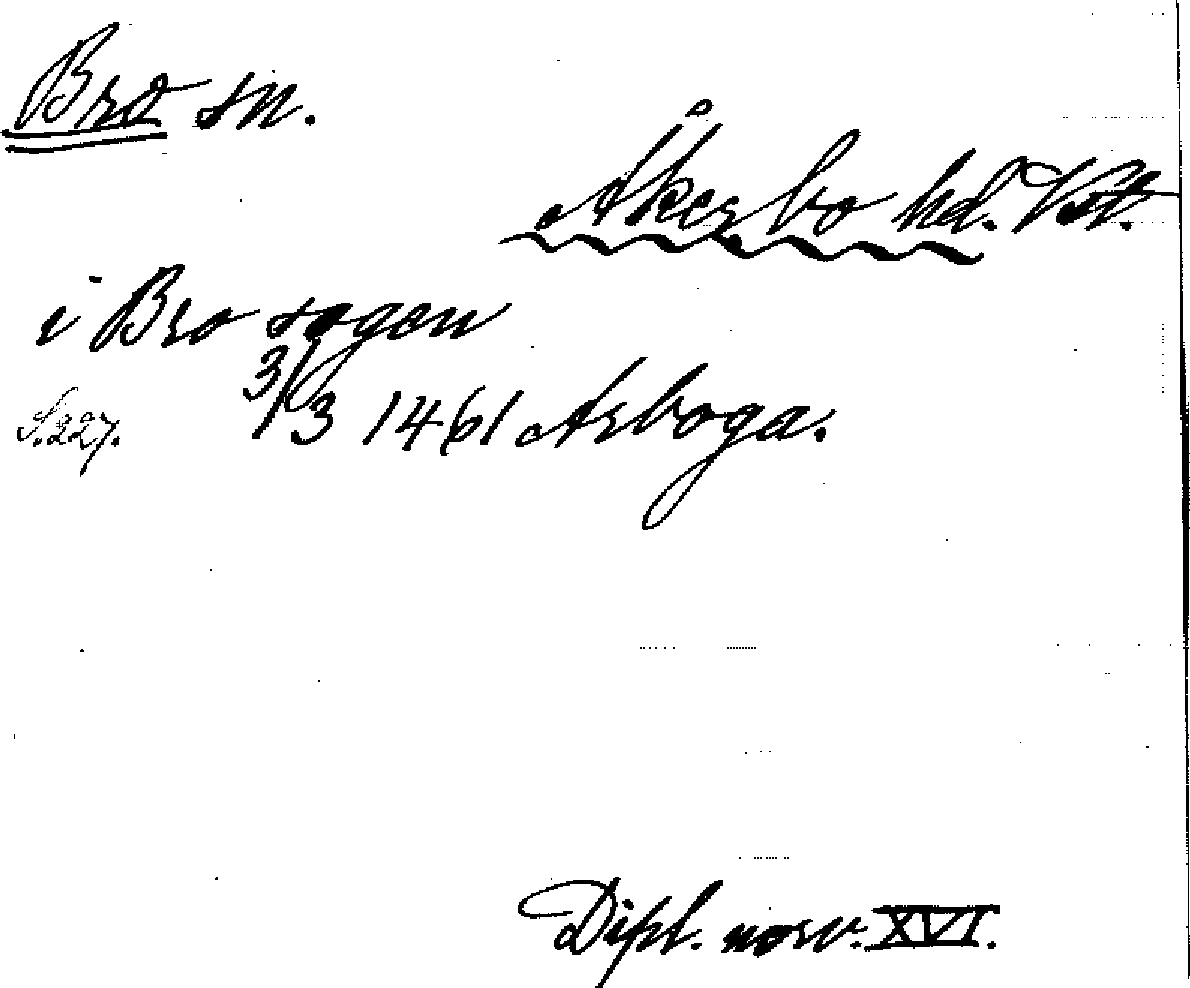 Bro sn.
Åkerbo hd. Vstl.
i Bro sogen
S. 227. 3/3 1461 Arboga.
Dipl. norv. XVI.